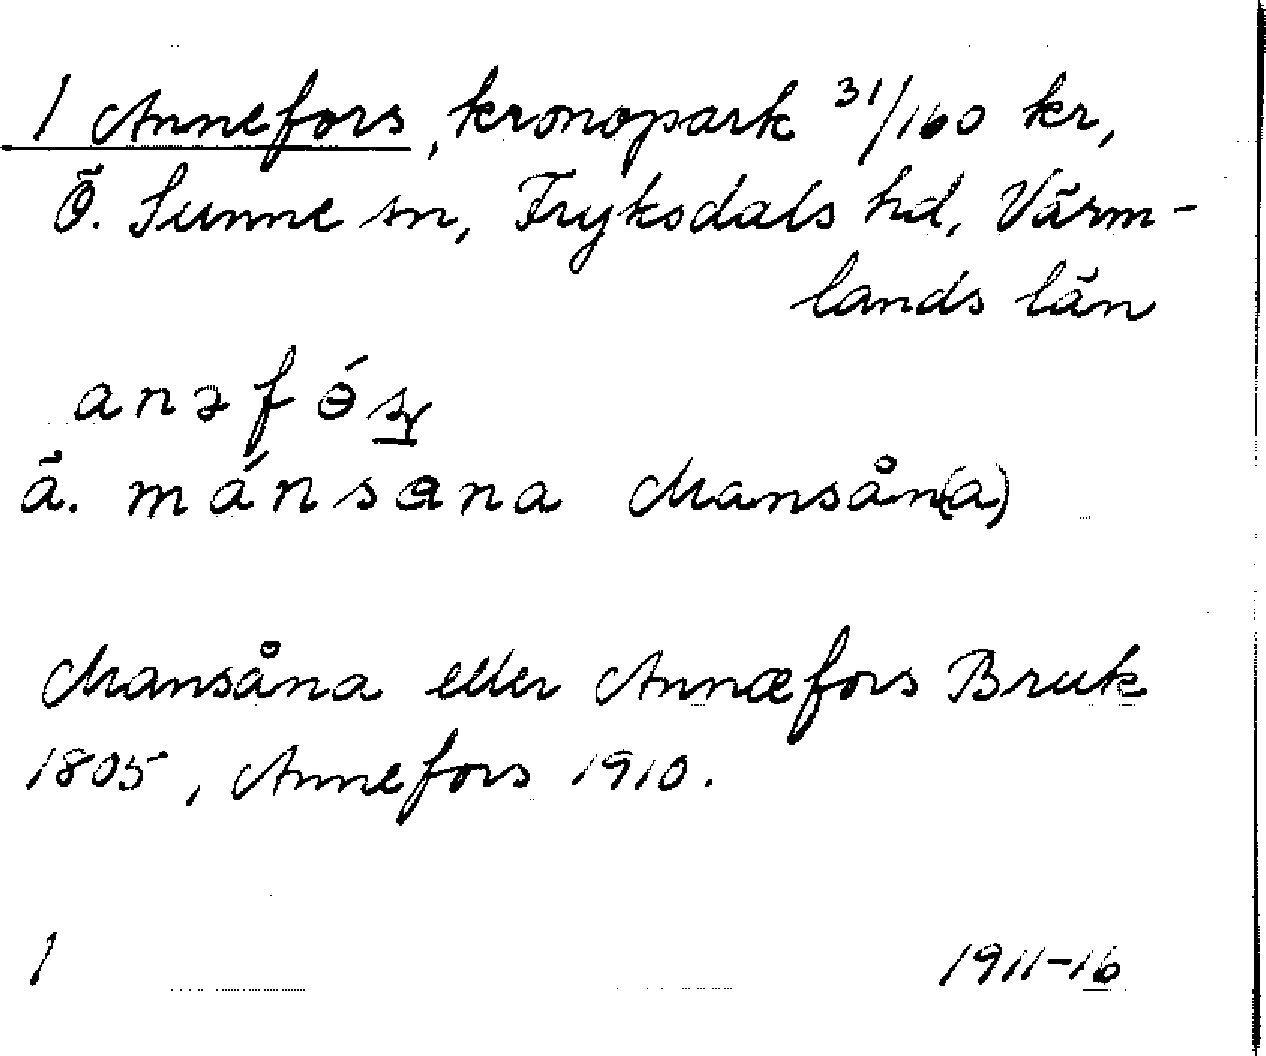 1 Annefors, kronopark 31/160 kr,
Ö. Sunne sn, Fryksdals hd, Värm-
lands län
anəfǿʂ
ä. mánsɵna Mansån(a)
Mansåna eller Annæfors Bruk
1805, Annefors 1910.
1 1911-16